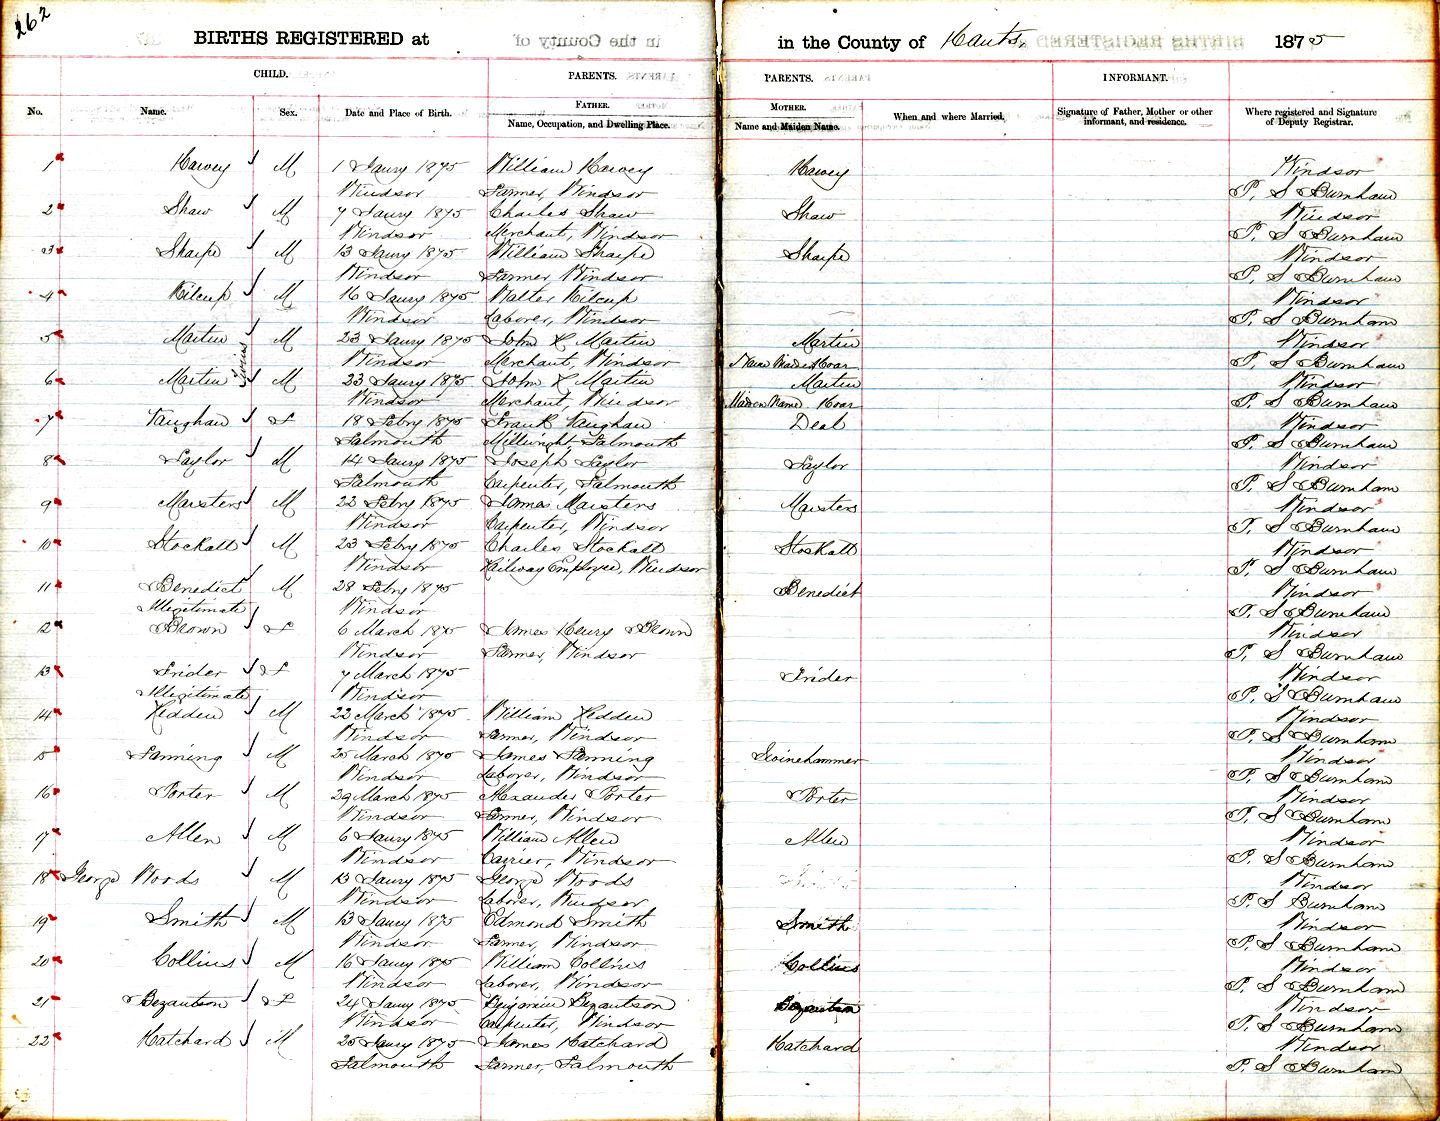 262
BIRTHS REGISTERED at in the County of Hants 1875
CHILD. PARENTS. PARENTS. INFORMANT.
No. Name. Sex. Date and Place of Birth. FATHER. Name, Occupation, and Dwelling Place. MOTHER. Name and Maiden Name. When and where Married. Signature of Father, Mother or other informant, and residence. Where registered and Signature of Deputy Registrar.
1 Harvey M 1 Jaury 1875 William Harvey Harvey Windsor
Windsor Farmer, Windsor P. S Burnham
2 Shaw M 7 Jaury 1875 Charles Shaw Shaw Windsor
Windsor Merchant, Windsor P. S Burnham
3 Sharpe M 13 Jaury 1875 William Sharpe Sharpe Windsor
Windsor Farmer, Windsor P. S Burnham
4 Kilcup M 16 Jaury 1875 Walter Kilcup Windsor
Windsor Laborer, Windsor P. S Burnham
5 Martin Twins M 23 Jaury 1875 John H Martin Martin Windsor
Windsor Merchant, Windsor Name Maiden Hoar P. S Burnham
6 Martin M 23 Jaury 1875 John H Martin Martin Windsor
Windsor Merchant, Windsor Maiden Name Hoar P. S Burnham
7 Vaughan F 18 Febry 1875 Frank Vaughan Deal Windsor
Falmouth Millwright Falmouth P. S Burnham
8 Taylor M 14 Jaury 1875 Joseph Taylor Taylor Windsor
Falmouth Carpenter, Falmouth P. S Burnham
9 Marsters M 22 Febry 1875 James Marsters Marsters Windsor
Windsor Carpenter, Windsor P. S Burnham
10 Stockall M 23 Febry 1875 Charles Stockall Stockall Windsor
Windsor Railway Employee, Windsor P. S Burnham
11 Benedict M 28 Febry 1875 Benedict Windsor
Illegitimate Windsor P. S Burnham
12 Brown F 6 March 1875 James Henry Brown Windsor
Windsor Farmer, Windsor P. S Burnham
13 Trider F 7 March 1875 Trider Windsor
Illegitimate Windsor P. S Burnham
14 Redden M 22 March 1875 William Redden Windsor
Windsor Farmer, Windsor P. S Burnham
15 Fanning M 25 March 1875 James Fanning Swinehammer Windsor
Windsor Laborer, Windsor P. S Burnham
16 Porter M 29 March 1875 Alexander Porter Porter Windsor
Windsor Farmer, Windsor P. S Burnham
17 Allen M 6 Jaury 1875 William Allen Allen Windsor
Windsor Carrier, Windsor P. S Burnham
18 George Woods M 13 Jaury 1875 George Woods Windsor
Windsor Laborer, Windsor P. S Burnham
19 Smith M 13 Jaury 1875 Edmond Smith Smith Windsor
Windsor Farmer, Windsor P. S Burnham
20 Collins M 16 Jaury 1875 William Collins Collins Windsor
Windsor Laborer, Windsor P. S Burnham
21 Bezantson F 24 Jaury 1875 Benjamin Bezantson Bezantson Windsor
Windsor Carpenter, Windsor P. S Burnham
22 Hatchard M 25 Jaury 1875 James Hatchard Hatchard Windsor
Falmouth Farmer, Falmouth P. S Burnham